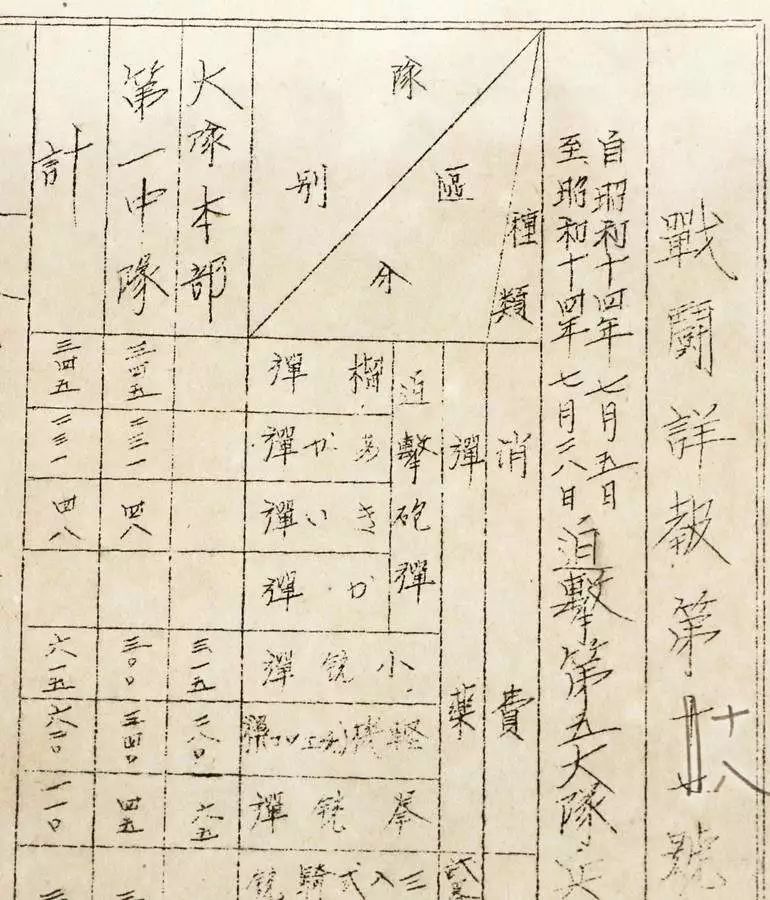 戰鬪詳報第十八號
自昭和十四年七月五日
至昭和十四年七月二八日
迫擊第五大隊兵
種類
區分
隊別
消費
彈藥
迫擊砲彈
榴彈
あか彈
きい彈
か彈
小銃彈
輕機
拳銃彈
三八式騎銃
大隊本部
三一五
二八〇
六五
第一中隊
三四五
二三一
四八
三〇〇
三四〇
四五
計
三四五
二三一
四八
六一五
六二〇
一一〇